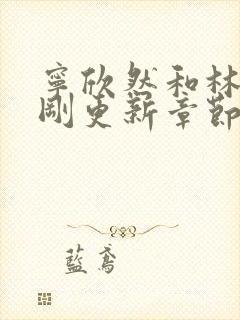 寧欣然和林
剛更新章節
藍鳶